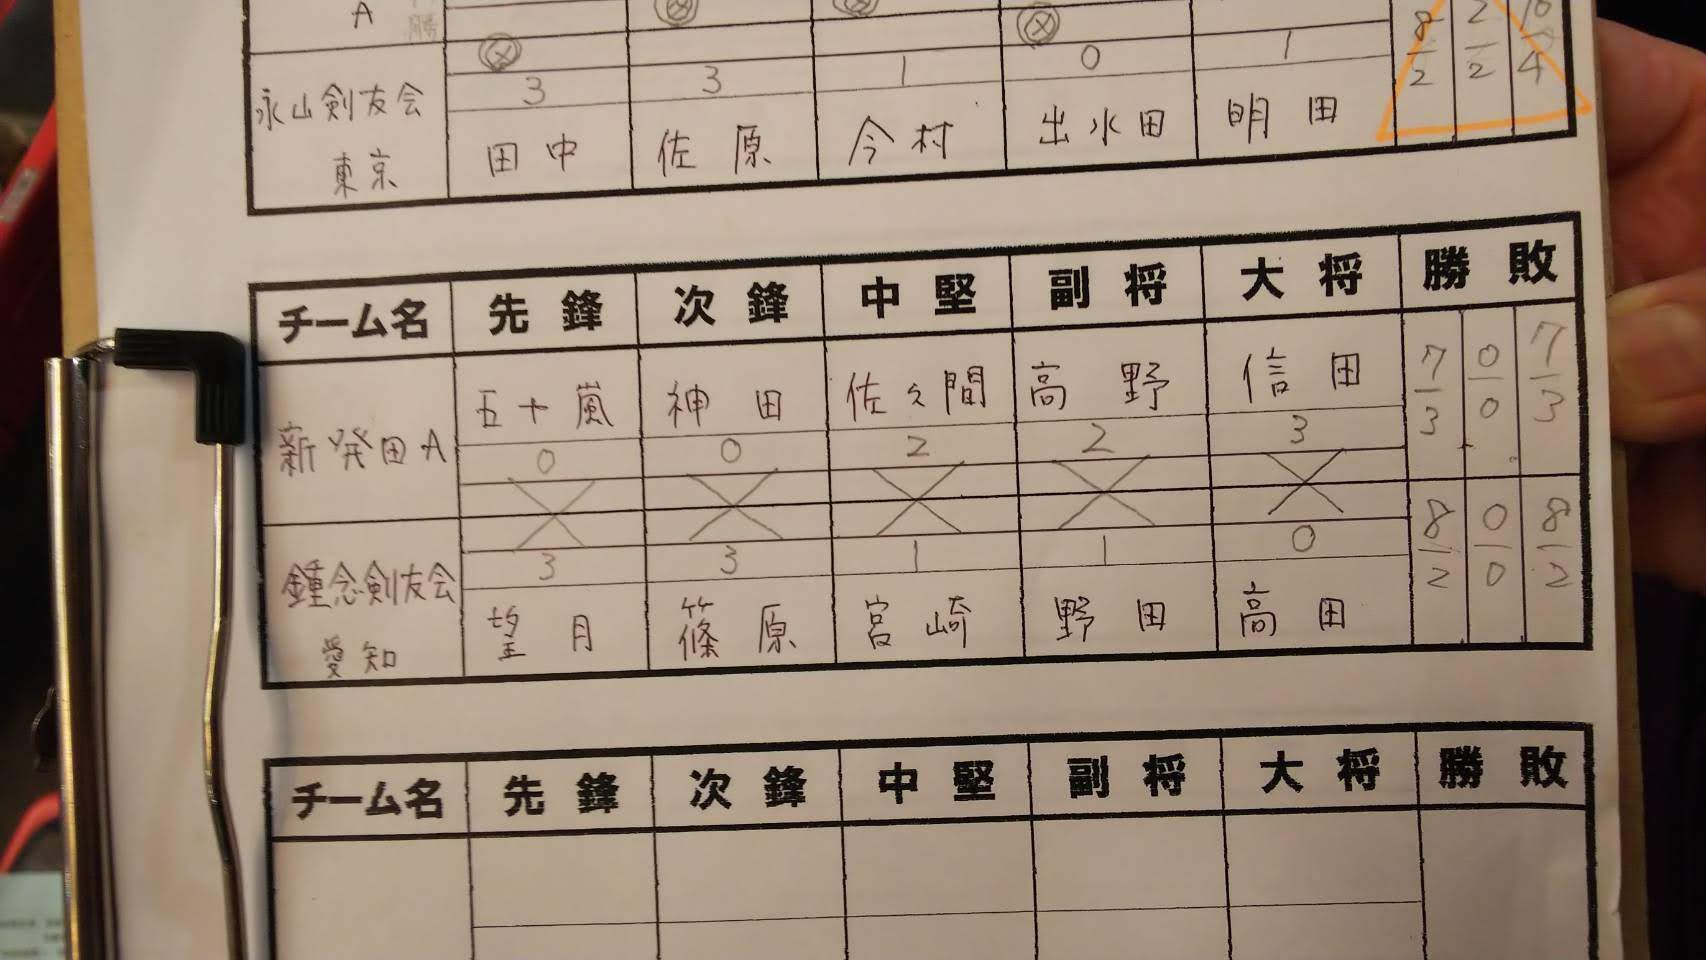 A
勝
8 2 10
2 2 4
3 3 1 0 1
永山剣友会
東京
田中 佐原 今村 出水田 明田
チーム名 先鋒 次鋒 中堅 副将 大将 勝敗
新発田A 五十嵐 神田 佐々間 高野 信田
0 0 2 2 3
7 0 7
3 0 3
3 3 1 1 0
8 0 8
2 0 2
鍾念剣友会
愛知
望月 篠原 宮崎 野田 高田
チーム名 先鋒 次鋒 中堅 副将 大将 勝敗